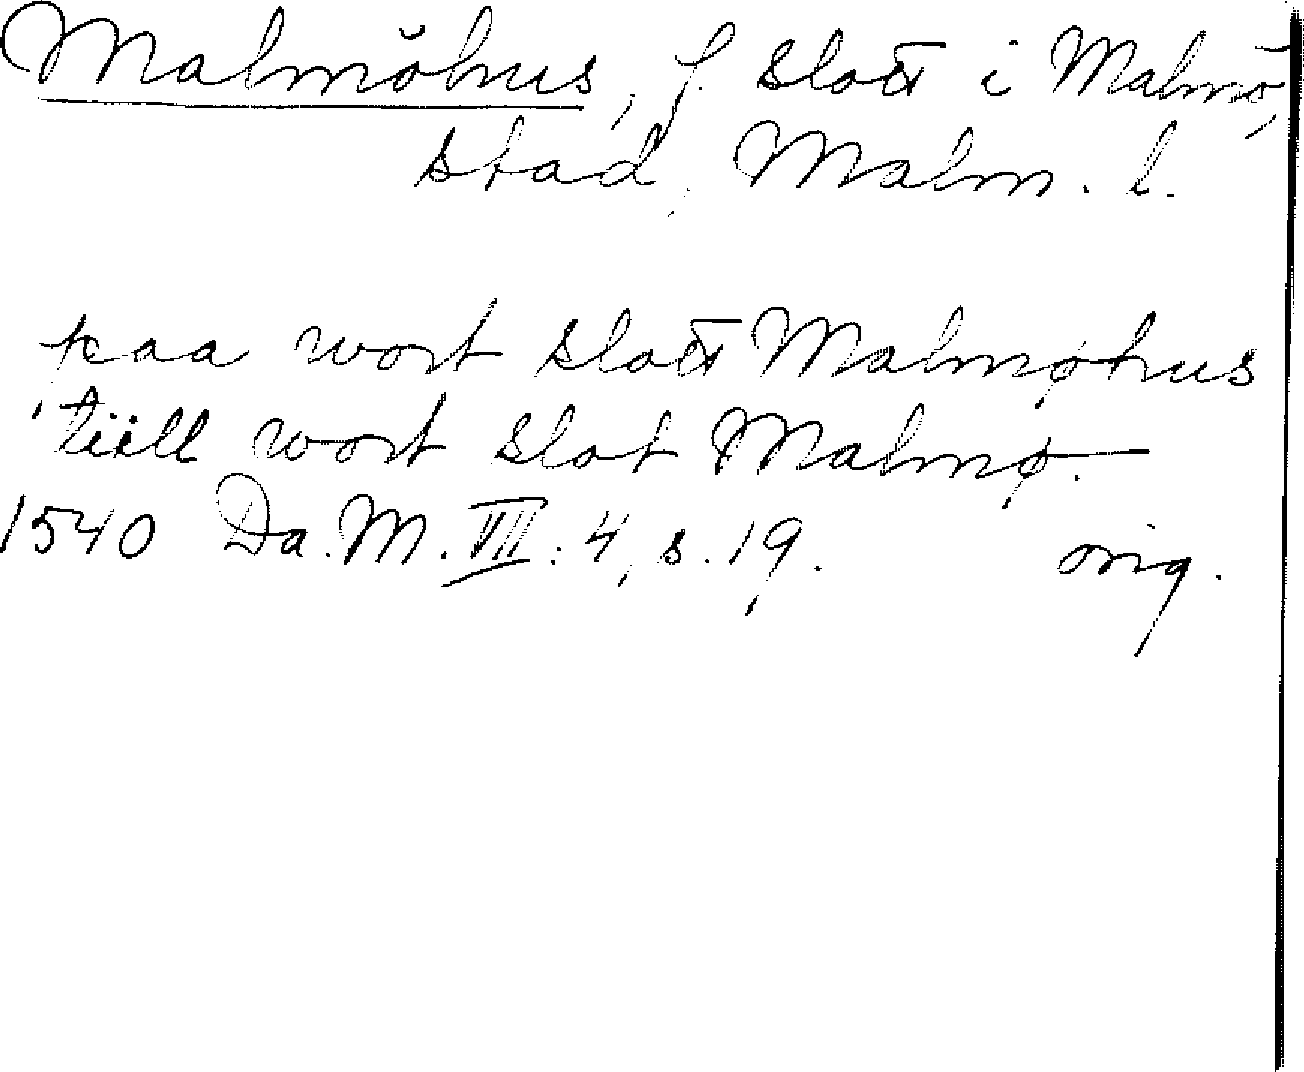 Malmöhus, f. slott i Malmö,
stad, Malm. l.
paa wort slott Malmøhus
tiill wort slot Malmø.
1540 Da. M. VII: 4, s. 19. orig.